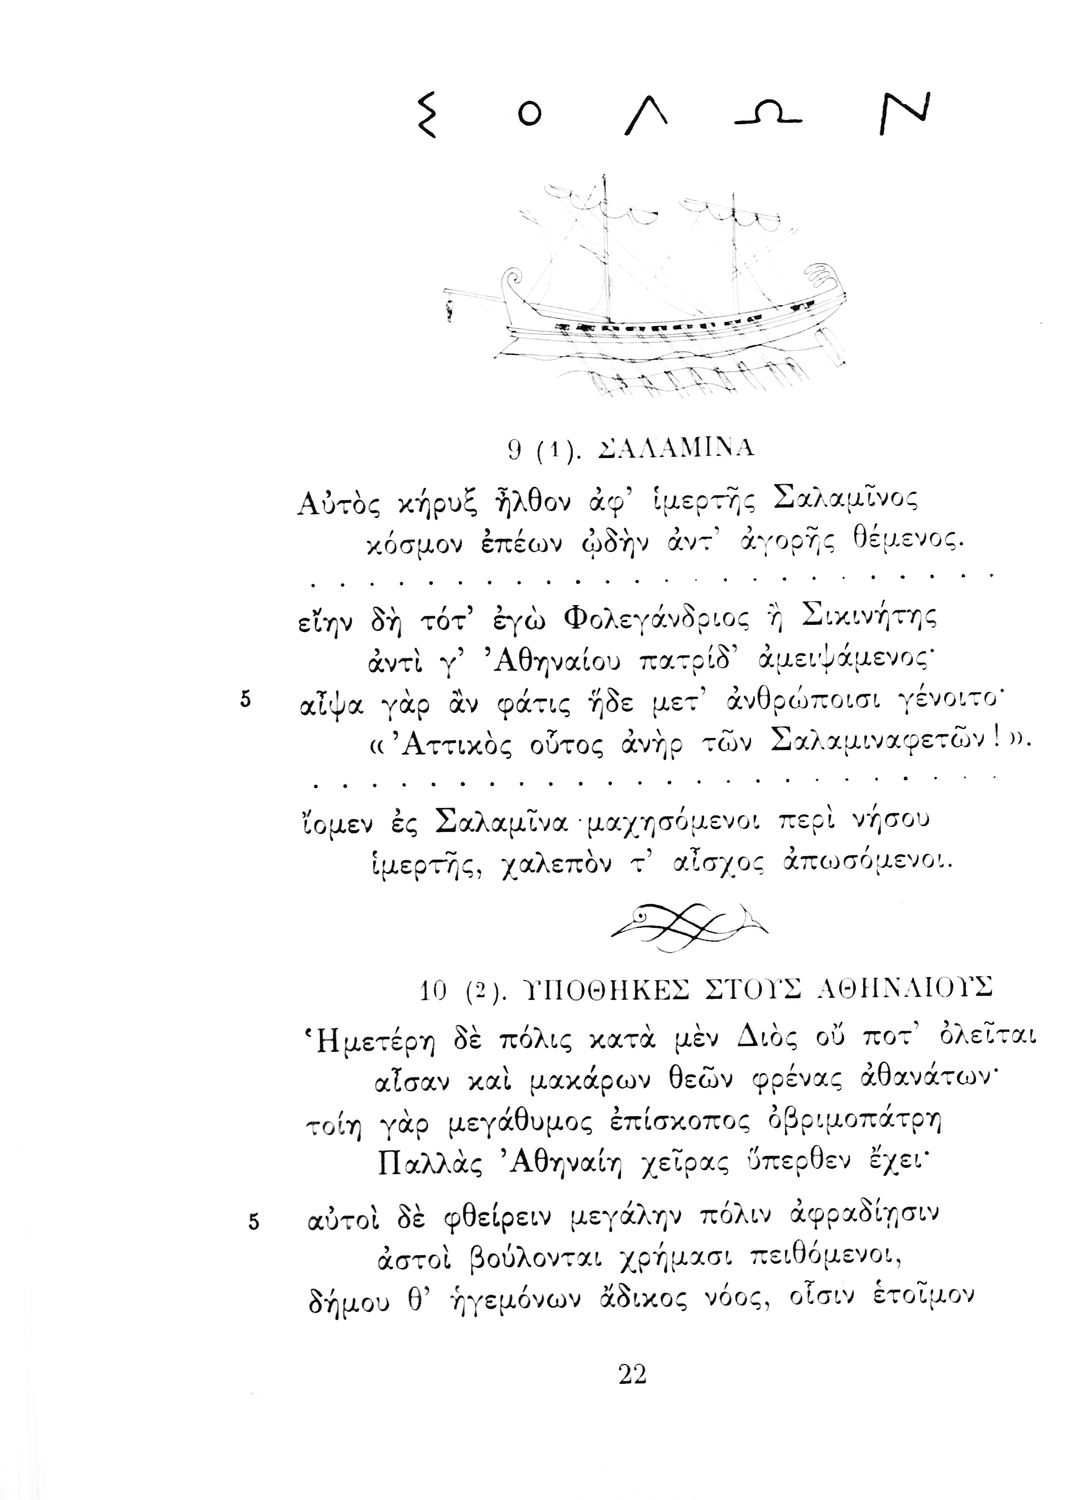 ΣΟΛΩΝ
9 (1). ΣΑΛΑΜΙΝΑ
Αὐτὸς κήρυξ ἦλθον ἀφ' ἱμερτῆς Σαλαμῖνος
κόσμον ἐπέων ᾠδὴν ἀντ' ἀγορῆς θέμενος.
. . . . . . . . . . . . . . . . . . . . . . . .
εἴην δὴ τότ' ἐγὼ Φολεγάνδριος ἢ Σικινήτης
ἀντὶ γ' Ἀθηναίου πατρίδ' ἀμειψάμενος·
5 αἶψα γὰρ ἂν φάτις ἥδε μετ' ἀνθρώποισι γένοιτο·
«Ἀττικὸς οὗτος ἀνὴρ τῶν Σαλαμιναφετῶν!».
. . . . . . . . . . . . . . . . . . . . . . . .
ἴομεν ἐς Σαλαμῖνα μαχησόμενοι περὶ νήσου
ἱμερτῆς, χαλεπὸν τ' αἶσχος ἀπωσόμενοι.
10 (2). ΥΠΟΘΗΚΕΣ ΣΤΟΥΣ ΑΘΗΝΑΙΟΥΣ
Ἡμετέρη δὲ πόλις κατὰ μὲν Διὸς οὔ ποτ' ὀλεῖται
αἶσαν καὶ μακάρων θεῶν φρένας ἀθανάτων·
τοίη γὰρ μεγάθυμος ἐπίσκοπος ὀβριμοπάτρη
Παλλὰς Ἀθηναίη χεῖρας ὕπερθεν ἔχει·
5 αὐτοὶ δὲ φθείρειν μεγάλην πόλιν ἀφραδίῃσιν
ἀστοὶ βούλονται χρήμασι πειθόμενοι,
δήμου θ' ἡγεμόνων ἄδικος νόος, οἷσιν ἑτοῖμον
22